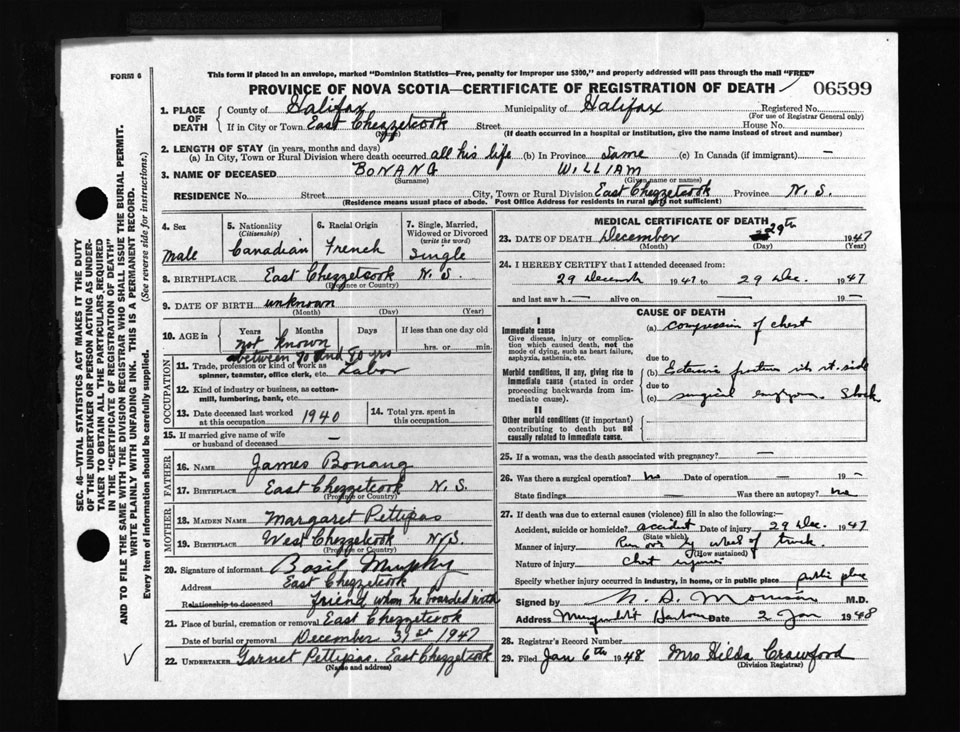 FORM 6
This form if placed in an envelope, marked "Dominion Statistics—Free, penalty for improper use $300," and properly addressed will pass through the mail "FREE"
PROVINCE OF NOVA SCOTIA—CERTIFICATE OF REGISTRATION OF DEATH 06599
1. PLACE OF DEATH County of Halifax Municipality of Halifax Registered No.
(For use of Registrar General only)
If in City or Town East Chezzetcook Street House No.
(Name) (If death occurred in a hospital or institution, give the name instead of street and number)
2. LENGTH OF STAY (in years, months and days)
(a) In City, Town or Rural Division where death occurred all his life (b) In Province Same (c) In Canada (if immigrant) —
3. NAME OF DECEASED BONANG WILLIAM
(Surname) (Given name or names)
RESIDENCE No. Street City, Town or Rural Division East Chezzetcook Province N. S.
(Residence means usual place of abode. Post Office Address for residents in rural parts not sufficient)
4. Sex 5. Nationality (Citizenship) 6. Racial Origin 7. Single, Married, Widowed or Divorced (write the word)
Male Canadian French Single
8. BIRTHPLACE East Chezzetcook N. S.
(Province or Country)
9. DATE OF BIRTH unknown
(Month) (Day) (Year)
10. AGE in Years Months Days If less than one day old
not known hrs. or min.
between 70 and 80 yrs
OCCUPATION
11. Trade, profession or kind of work as spinner, teamster, office clerk, etc. Labor
12. Kind of industry or business, as cotton-mill, lumbering, bank, etc.
13. Date deceased last worked at this occupation 1940 14. Total yrs. spent in this occupation
15. If married give name of wife or husband of deceased —
FATHER
16. NAME James Bonang
17. BIRTHPLACE East Chezzetcook N. S.
(Province or Country)
MOTHER
18. MAIDEN NAME Margaret Pettipas
19. BIRTHPLACE West Chezzetcook N. S.
(Province or Country)
20. Signature of informant Basil Murphy
Address East Chezzetcook
Relationship to deceased friend whom he boarded with
21. Place of burial, cremation or removal East Chezzetcook
Date of burial or removal December 31st 1947
22. UNDERTAKER Garnet Pettipas. East Chezzetcook
(Name and address)
MEDICAL CERTIFICATE OF DEATH
23. DATE OF DEATH December 29th 1947
(Month) (Day) (Year)
24. I HEREBY CERTIFY that I attended deceased from:
29 December 1947 to 29 Dec. 1947
and last saw h — alive on — 19 —
CAUSE OF DEATH
I
Immediate cause (a) compression of chest
Give disease, injury or complication which caused death, not the mode of dying, such as heart failure, asphyxia, asthenia, etc.
due to
Morbid conditions, if any, giving rise to immediate cause (stated in order proceeding backwards from immediate cause).
(b) rib rt. side
due to
(c) surgical Shock
II
Other morbid conditions (if important) contributing to death but not causally related to immediate cause.
25. If a woman, was the death associated with pregnancy? —
26. Was there a surgical operation? no Date of operation — 19 —
State findings — Was there an autopsy? no
27. If death was due to external causes (violence) fill in also the following:
Accident, suicide or homicide? accident Date of injury 29 Dec. 1947
(State which)
Manner of injury Run over by wheel of truck.
(How sustained)
Nature of injury Chest injuries
Specify whether injury occurred in industry, in home, or in public place public place
Signed by N. D. Morrison M.D.
Address Musquodoboit Harbour Date 2 Jan 1948
28. Registrar's Record Number
29. Filed Jan 6th 1948 Mrs Hilda Crawford
(Division Registrar)
SEC. 46—VITAL STATISTICS ACT MAKES IT THE DUTY
OF THE UNDERTAKER OR PERSON ACTING AS UNDER-
TAKER TO OBTAIN ALL THE PARTICULARS REQUIRED
IN THE "CERTIFICATE OF REGISTRATION OF DEATH"
AND TO FILE THE SAME WITH THE DIVISION REGISTRAR WHO SHALL ISSUE THE BURIAL PERMIT.
WRITE PLAINLY WITH UNFADING INK. THIS IS A PERMANENT RECORD.
Every item of information should be carefully supplied. (See reverse side for instructions.)